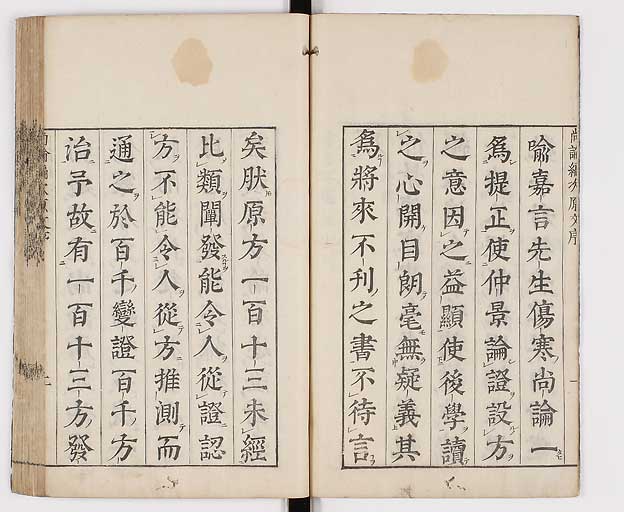 喩嘉言先生傷寒尚論一
爲提正使仲景論證設方
之意因之益顯使後學讀
之心開目朗毫無疑義其
爲將來不刊之書不待言
矣肰原方一百十三未經
比類闡發能令人從證認
方不能令人從方推測而
通之於百千變證百千方
治予故有一百十三方發